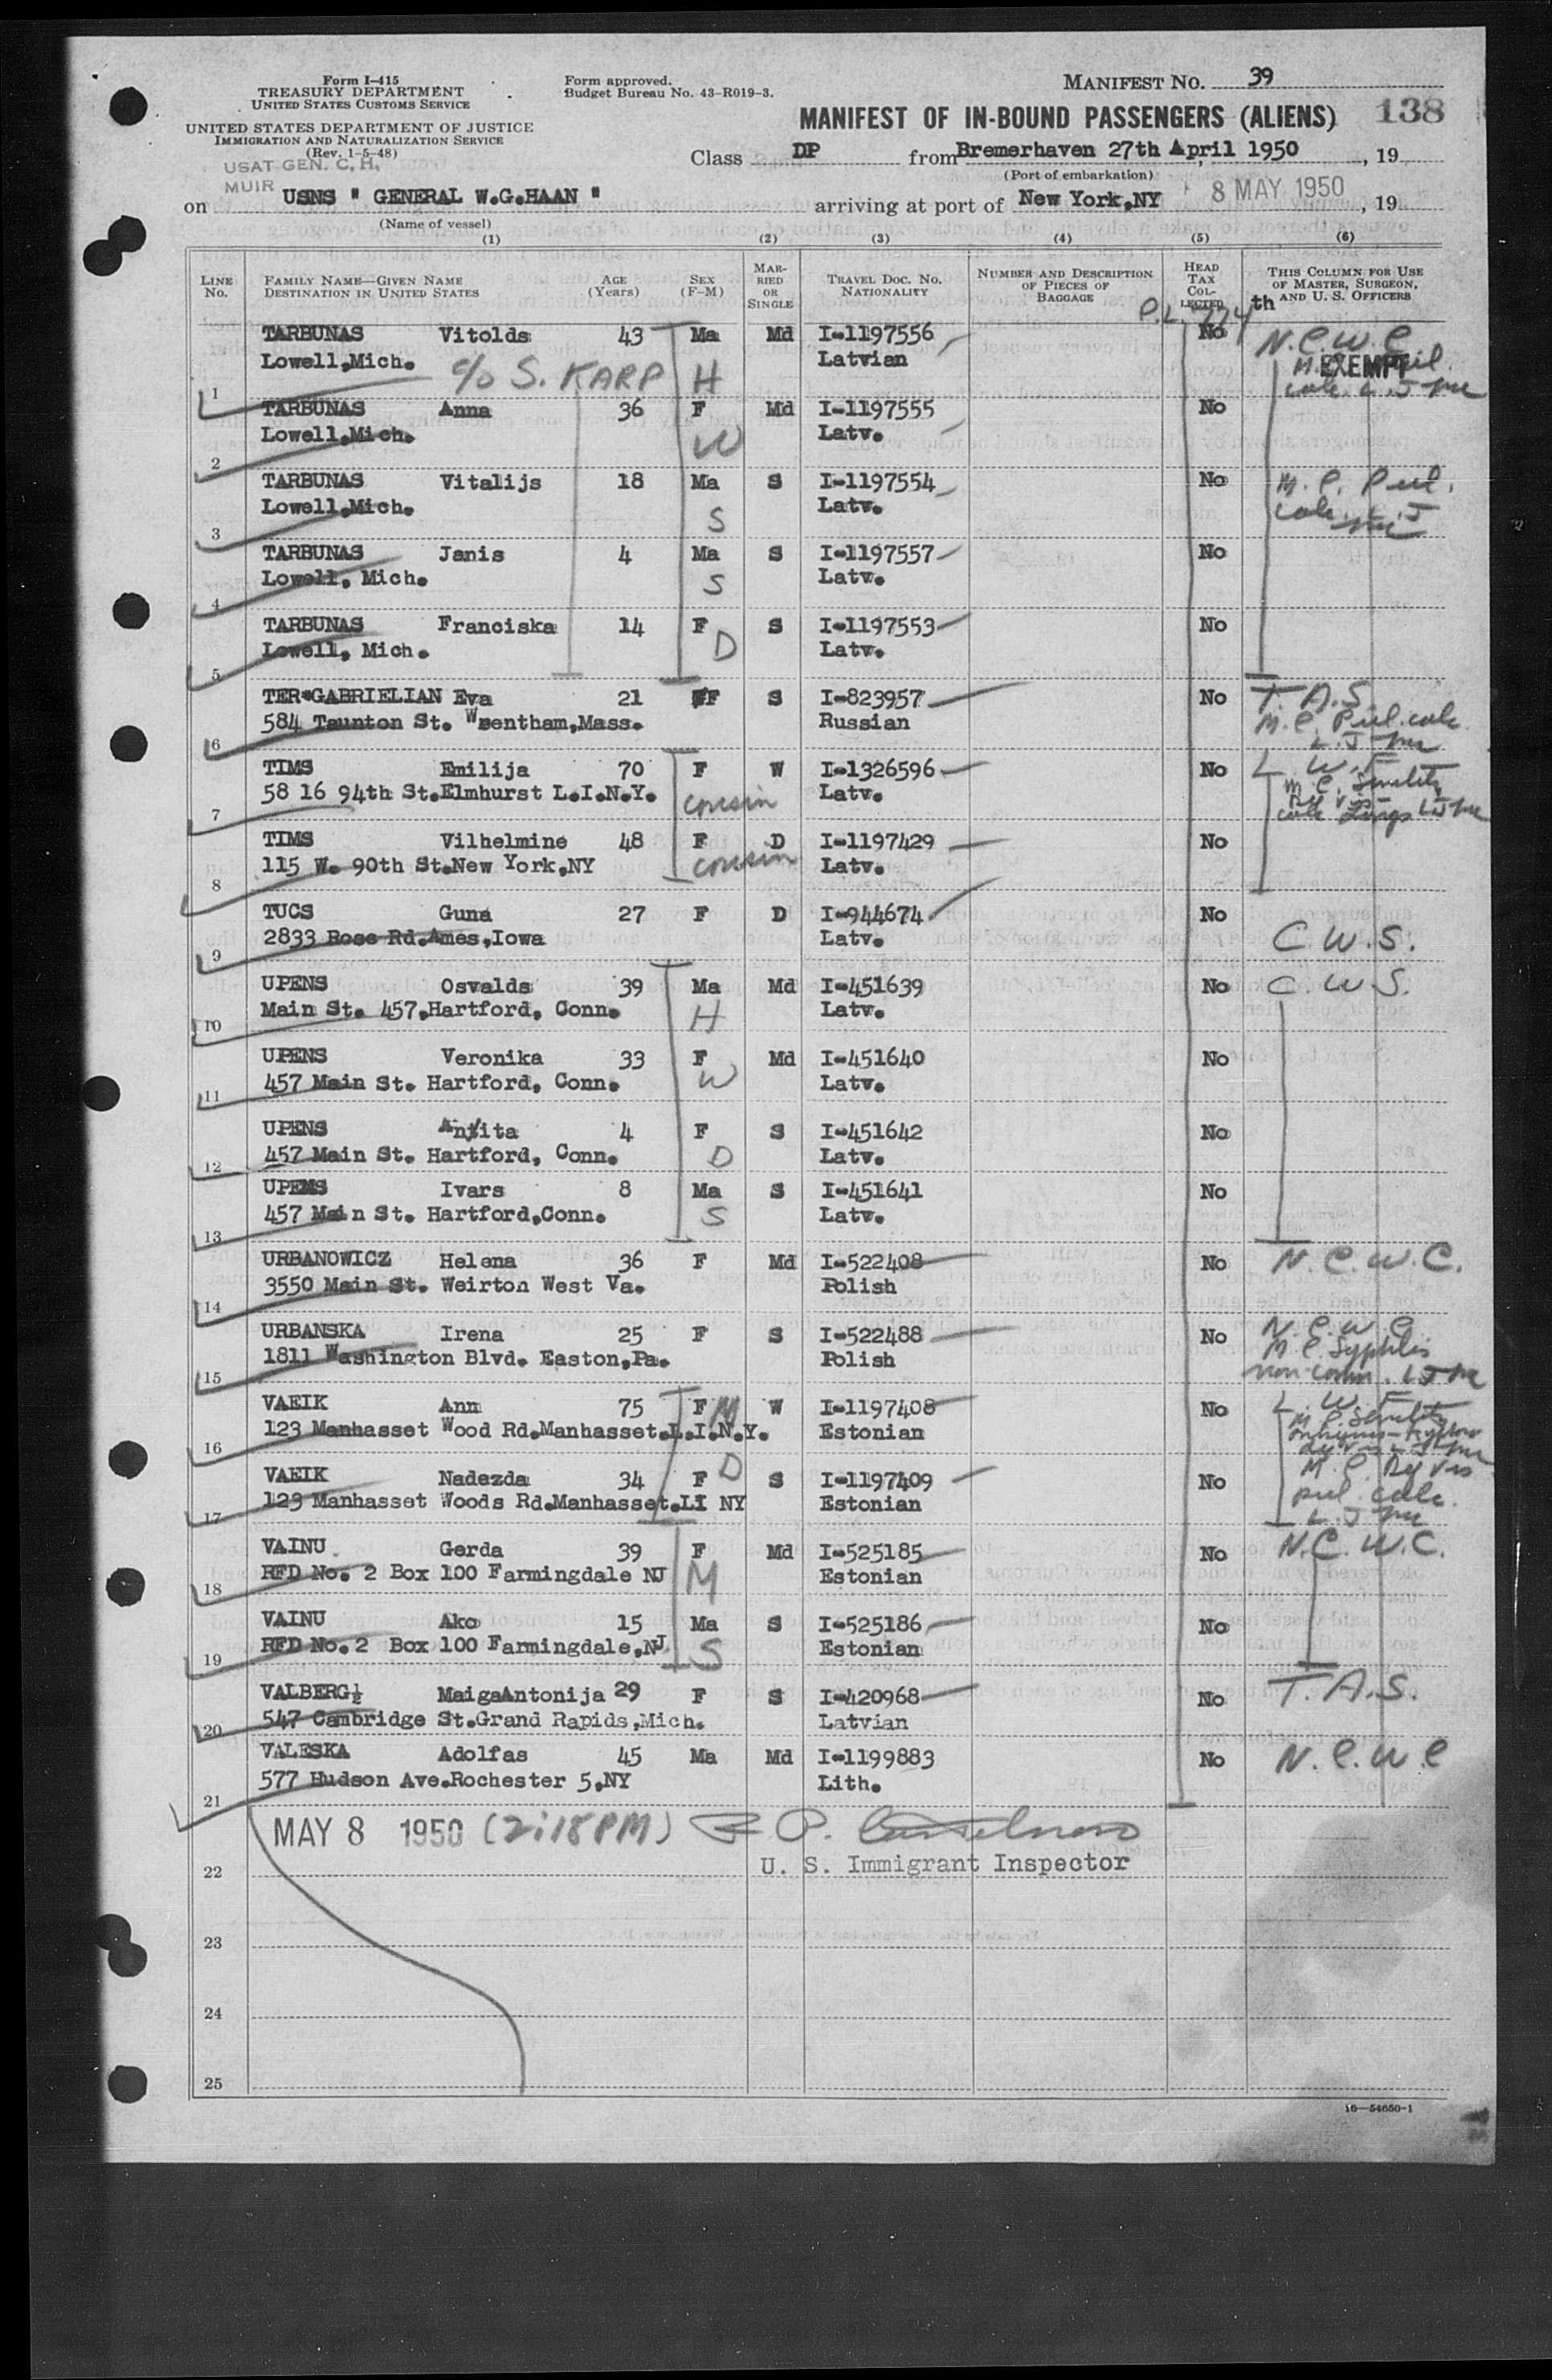 Form I-415
TREASURY DEPARTMENT
UNITED STATES CUSTOMS SERVICE
UNITED STATES DEPARTMENT OF JUSTICE
IMMIGRATION AND NATURALIZATION SERVICE
(Rev. 1-5-48)
Form approved.
Budget Bureau No. 43-R019-3.
MANIFEST NO. 39
MANIFEST OF IN-BOUND PASSENGERS (ALIENS) 138
Class DP from Bremerhaven 27th April 1950, 19
(Port of embarkation)
USAT GEN. C. H.
MUIR
on USNS " GENERAL W.G.HAAN " arriving at port of New York,NY 8 MAY 1950, 19
(Name of vessel)
(1) (2) (3) (4) (5) (6)
LINE No. FAMILY NAME—GIVEN NAME DESTINATION IN UNITED STATES AGE (Years) SEX (F-M) MARRIED OR SINGLE TRAVEL DOC. NO. NATIONALITY NUMBER AND DESCRIPTION OF PIECES OF BAGGAGE HEAD TAX COLLECTED THIS COLUMN FOR USE OF MASTER, SURGEON, AND U. S. OFFICERS
P.L. 774 th
TARBUNAS Vitolds 43 Ma Md I-1197556 No N.C.W.C.
Lowell,Mich. c/o S. KARP H Latvian EXEMPT
1
TARBUNAS Anna 36 F Md I-1197555 No
Lowell,Mich. W Latv.
2
TARBUNAS Vitalijs 18 Ma S I-1197554 No M.C. Pul.
Lowell,Mich. S Latv. calc. L.J
3
TARBUNAS Janis 4 Ma S I-1197557 No
Lowell, Mich. S Latv.
4
TARBUNAS Franciska 14 F S I-1197553 No
Lowell, Mich. D Latv.
5
TER-GABRIELIAN Eva 21 F S I-823957 No T.A.S.
584 Taunton St. Wrentham,Mass. Russian M.C. Pul. calc.
6
TIMS Emilija 70 F W I-1326596 No L.W.F.
58 16 94th St.Elmhurst L.I.N.Y. cousin Latv. M.C. Senility
7
TIMS Vilhelmine 48 F D I-1197429 No
115 W. 90th St.New York,NY cousin Latv.
8
TUCS Guna 27 F D I-944674 No
2833 Rose Rd.Ames,Iowa Latv. C.W.S.
9
UPENS Osvalds 39 Ma Md I-451639 No C.W.S.
Main St. 457,Hartford, Conn. H Latv.
10
UPENS Veronika 33 F Md I-451640 No
457 Main St. Hartford, Conn. W Latv.
11
UPENS Anita 4 F S I-451642 No
457 Main St. Hartford, Conn. D Latv.
12
UPENS Ivars 8 Ma S I-451641 No
457 Main St. Hartford,Conn. S Latv.
13
URBANOWICZ Helena 36 F Md I-522408 No N.C.W.C.
3550 Main St. Weirton West Va. Polish
14
URBANSKA Irena 25 F S I-522488 No N.C.W.C.
1811 Washington Blvd. Easton,Pa. Polish M.C. Syphilis
15
VAEIK Ann 75 F M W I-1197408 No L.W.F.
123 Manhasset Wood Rd.Manhasset.L.I.N.Y. Estonian M.C. Senility
16
VAEIK Nadezda 34 F D S I-1197409 No M.C.
123 Manhasset Woods Rd.Manhasset.LI NY Estonian pul. calc.
17
VAINU Gerda 39 F Md I-525185 No N.C.W.C.
RFD No. 2 Box 100 Farmingdale NJ M Estonian
18
VAINU Ako 15 Ma S I-525186 No
RFD No.2 Box 100 Farmingdale,NJ S Estonian
19
VALBERG½ MaigaAntonija 29 F S I-420968 No T.A.S.
547 Cambridge St.Grand Rapids,Mich. Latvian
20
VALESKA Adolfas 45 Ma Md I-1199883 No N.C.W.C
577 Hudson Ave.Rochester 5,NY Lith.
21
MAY 8 1950 (2:18PM)
U. S. Immigrant Inspector
22
23
24
25
16—54650-1